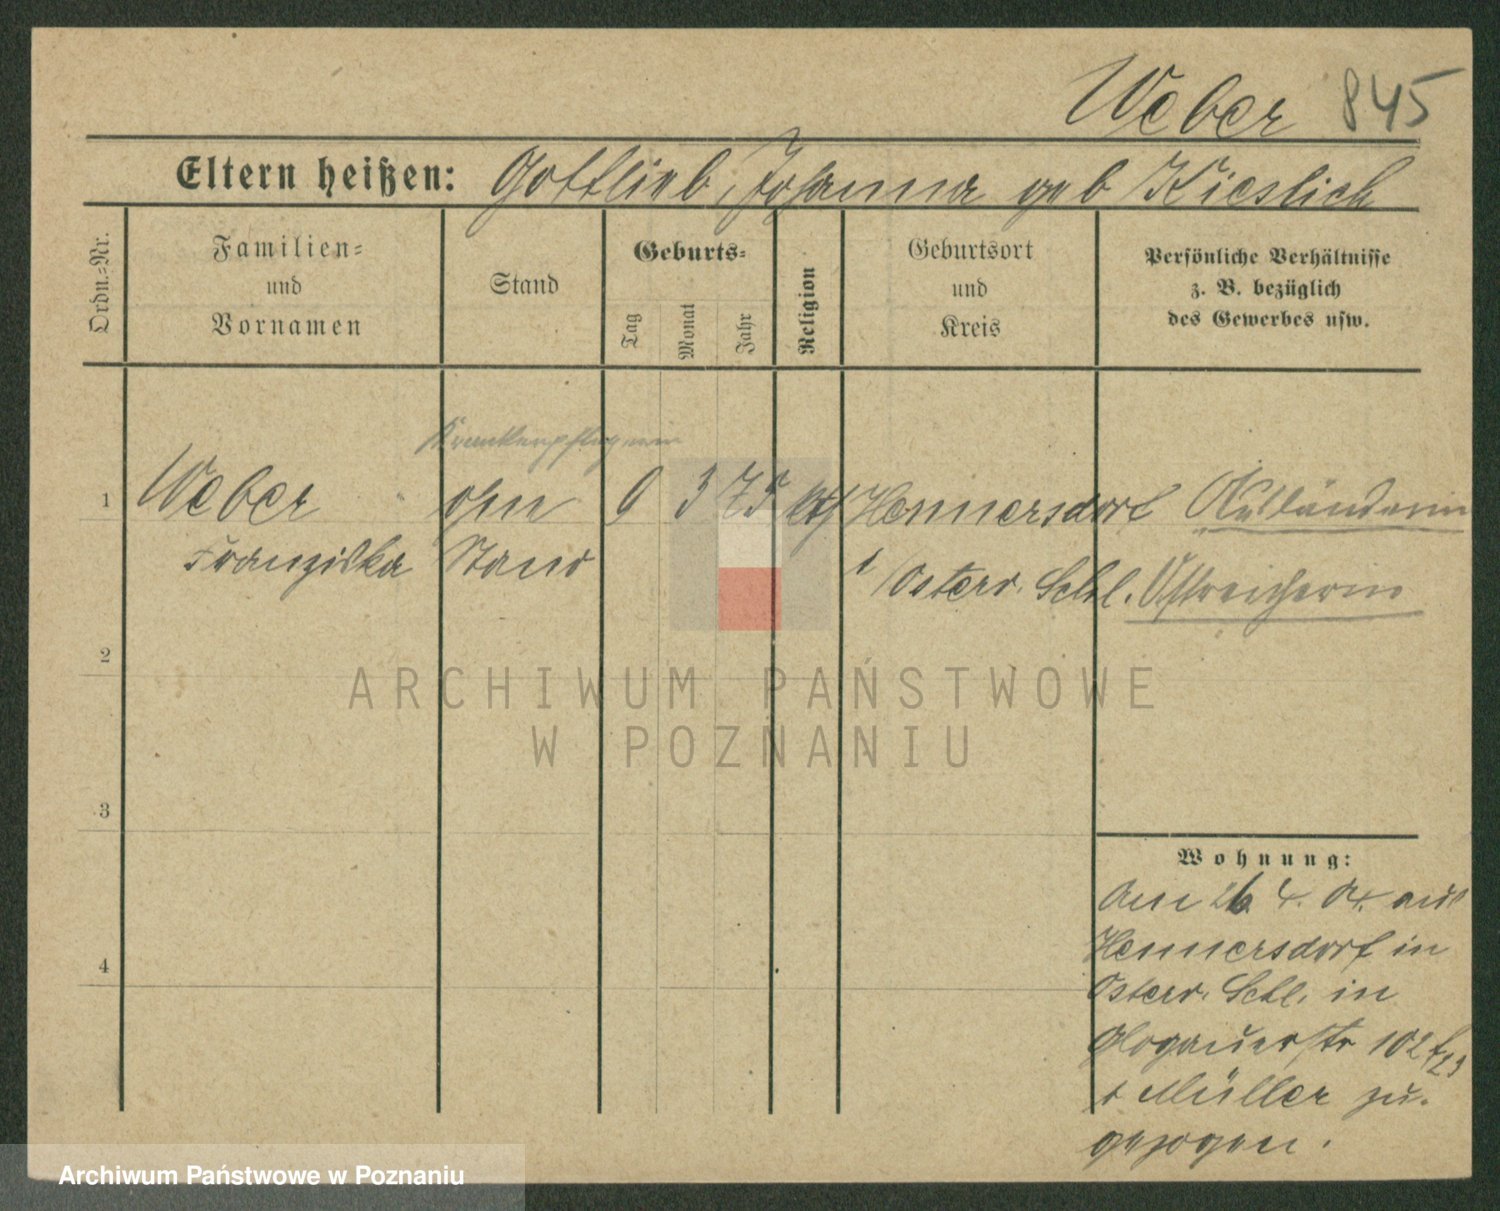 Weber 845
Eltern heißen: Gottlieb, Johanna geb Kieslich
Ordn.-Nr.
Familien-
und
Vornamen
Stand
Geburts-
Tag
Monat
Jahr
Religion
Geburtsort
und
Kreis
Persönliche Verhältnisse
z. B. bezüglich
des Gewerbes usw.
Krankenpflegerin
1 Weber ohne 9 3 75 kth Hennersdorf Ausländerin
Franziska Stand i/Osterr. Schl. Östreicherin
2
3
4
ARCHIWUM PAŃSTWOWE
W POZNANIU
Wohnung:
Am 26. 4. 04. aus
Hennersdorf in
Osterr. Schl. in
Glogauerstr 102
Müller zu-
gezogen.
Archiwum Państwowe w Poznaniu